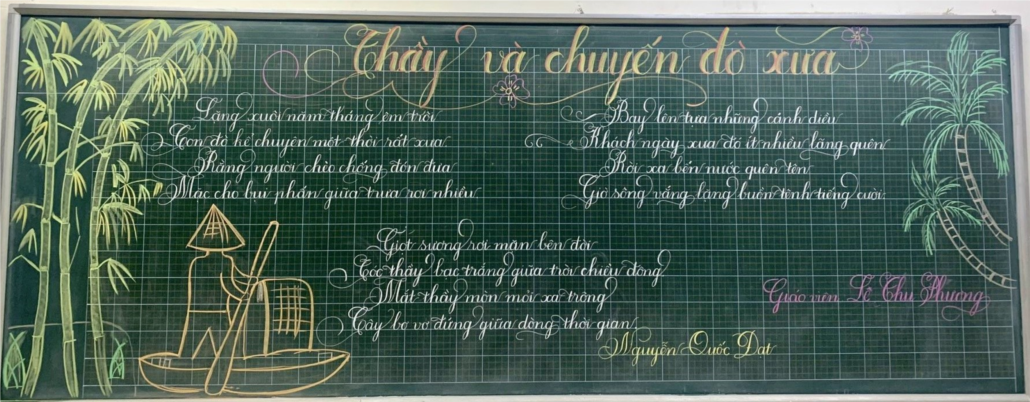 Thầy và chuyến đò xưa
Lặng xuôi năm tháng êm trôi
Con đò kể chuyện một thời rất xưa
Rằng người chèo chống đón đưa
Mặc cho bụi phấn giữa trưa rơi nhiều
Bay lên tựa những cánh diều
Khách ngày xưa đó ít nhiều lãng quên
Rời xa bến nước quên tên
Giờ sông vắng lặng buồn tênh tiếng cười.
Giọt sương rơi mặn bên đời
Tóc thầy bạc trắng giữa trời chiều đông
Mắt thầy mòn mỏi xa trông
Cây bơ vơ đứng giữa dòng thời gian.
Nguyễn Quốc Đạt
Giáo viên Lê Thu Phương